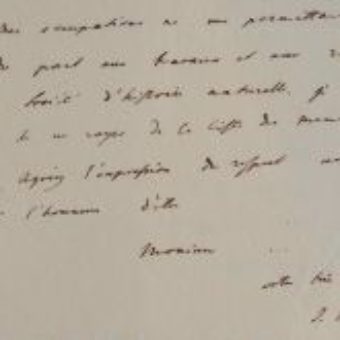 occupations ne me permettant
part aux travaux et aux
Société d'histoire naturelle, je
de me rayer de la liste des mem
l'expression du respect
l'honneur d'être
Monsieur
votre très